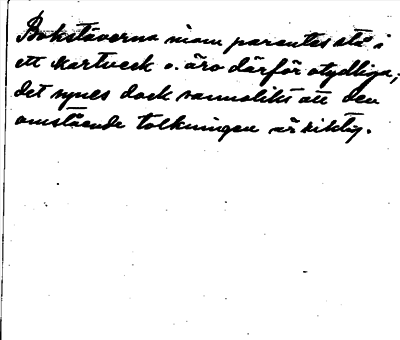 Bokstäverna inom parentes stå i
ett kartveck o. äro därför otydliga;
det synes dock sannolikt att den
omstående tolkningen är riktig.